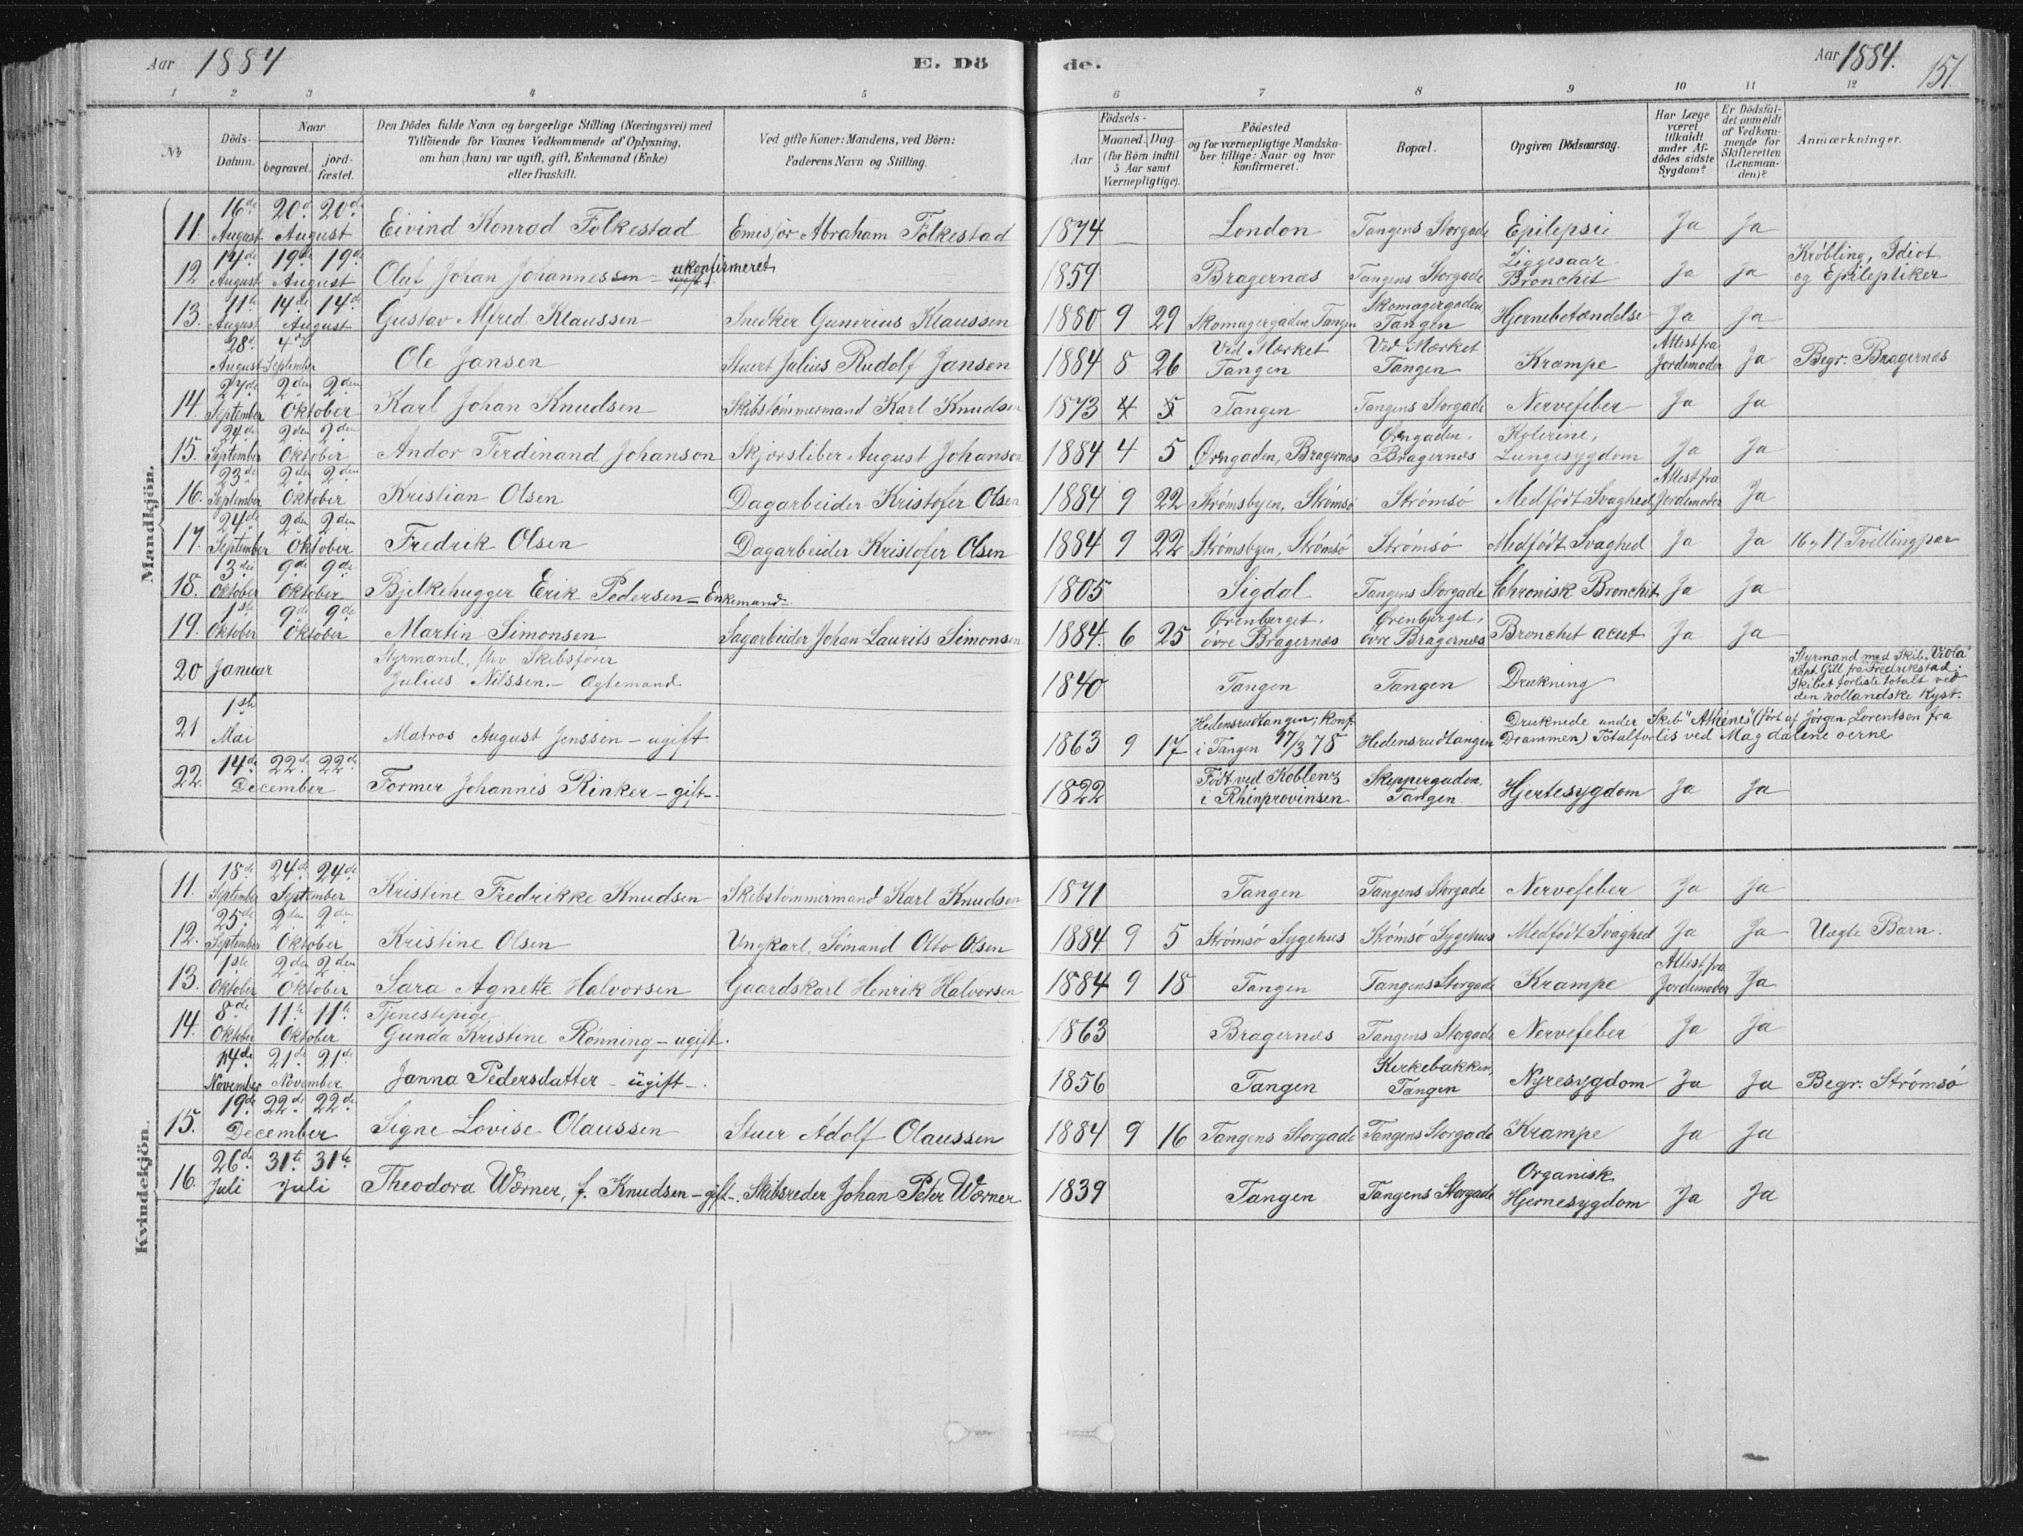 Aar 1884 E. Dö de. Aar 1884. 151.
1 2 3 4 5 6 7 8 9 10 11 12
No Döds-Datum. Naar begravet. jordfæstet. Den Dödes fulde Navn og borgerlige Stilling (Næringsvei) med Tilföiende for Voxnes Vedkommende af Oplysning, om han (hun) var ugift, gift, Enkemand (Enke) eller fraskilt. Ved gifte Koner: Mandens, ved Börn: Faderens Navn og Stilling. Födsels- Aar Maaned. Dag. (for Börn indtil 5 Aar samt Værnepligtige). Födested og for værnepligtige Mandskaber tillige: Naar og hvor konfirmeret. Bopæl. Opgiven Dödsaarsag. Har Læge været tilkaldt under Afdödes sidste Sygdom? Er Dödsfaldet anmeldt af Vedkommende for Skifteretten (Lensmanden)? Anmærkninger.
Mandkjön.
11. 16de August 20de 20de August Eivind Konrad Folkestad Emisjør Abraham Folkestad 1874 London Tangens Storgade Epilepsie Ja Ja
12 14de August 19de 19de August Oluf Johan Johannessen – ugift. ukonfirmeret 1859 Bragernæs Tangens Storgade Liggesaar Bronchit Ja Ja Krøbling, Idiot og Epileptiker
13. 11te August 14de 14de August Gustav Alfred Klaussen Snedker Gunerius Klaussen 1880 9 29 Skomagergaden, Tangen Skomagergaden Tangen Hjernebetændelse Ja Ja
28de August 4de September Ole Jansen Stuert Julius Rudolf Jansen 1884 8 26 Ved Mærket Tangen Ved Mærket Tangen Krampe Attest fra Jordemoder Ja Begr. Bragernæs
14. 27de September 2den 2den Oktober Karl Johan Knudsen Skibstømmermand Karl Knudsen 1873 4 5 Tangen Tangens Storgade Nervefeber Ja Ja
15. 24de September 2den 2den Oktober Andor Ferdinand Johanson Skjærsliber August Johanson 1884 4 5 Ørngaden, Bragernæs Ørngaden, Bragernæs Kolerine, Lungesygdom Ja Ja
16. 23de September 2den 2den Oktober Kristian Olsen Dagarbeider Kristofer Olsen 1884 9 22 Strømsbyen, Strømsø Strømsø Medfødt Svaghed Attest fra Jordemoder Ja
17. 24de September 2den 2den Oktober Fredrik Olsen Dagarbeider Kristofer Olsen 1884 9 22 Strømsbyen, Strømsø Strømsø Medfødt Svaghed Ja Ja 16 og 17 Tvillingpar
18. 3die Oktober 9de 9de Oktober Bjelkehugger Erik Pedersen – Enkemand. 1805 Sigdal Tangens Storgade Chronisk Bronchit Ja Ja
19. 1ste Oktober 9de 9de Oktober Martin Simonsen Sagarbeider Johan Laurits Simonsen 1884. 6 25 Ørenberget, øvre Bragernæs Ørenberget, øvre Bragernæs Bronchit acut Ja Ja
20 Januar Styrmand, fhv Skibsfører Julius Nilssen. – Ægtemand. 1840 Tangen Tangen Drukning Styrmand med Skib "Viola" kapt. Gill fra Fredrikstad; Skibet forliste totalt ved den hollandske Kyst.
21 1ste Mai Matros August Jenssen – ugift 1863 9 17 Hedensrudtangen; konf. i Tangen 17/3 78 Hedensrudtangen Druknede under Skib "Athenes" (ført af Jørgen Lorentsen fra Drammen) Totalforlis ved Magdalene øerne
22. 14de 22de 22de December Former Johannes Rinker – gift –. 1822 Født ved Koblenz i Rhinprovinsen Skippergaden, Tangen Hjertesygdom Ja Ja
Kvindekjön.
11. 18de September 24de 24de September Kristine Fredrikke Knudsen Skibstømmermand Karl Knudsen 1871 Tangen Tangens Storgade Nervefeber Ja Ja
12. 25de September 2den 2den Oktober Kristine Olsen Ungkarl, Sømand Otto Olsen 1884 9 5 Strømsø Sygehus Strømsø Sygehus Medfødt Svaghed Ja Ja Uægte Barn.
13. 1ste Oktober 2den 2den Oktober Sara Agnette Halvorsen Gaardskarl Henrik Halvorsen 1884 9 18 Tangen Tangens Storgade Krampe Attest fra Jordemoder Ja
14. 8de Oktober 11te 11te Oktober Tjenestepige Gunda Kristine Rønning – ugift. 1863 Bragernæs Tangens Storgade Nervefeber Ja Ja
14de November 21de 21de November Janna Pedersdatter – ugift –. 1856 Tangen Kirkebakken, Tangen Nyresygdom Ja Ja Begr. Strømsø
15. 19de 22de 22de December Signe Lovise Olaussen Stuer Adolf Olaussen 1884 9 16 Tangens Storgade Tangens Storgade Krampe Ja Ja
16. 26de Juli 31te 31te Juli Theodora Wørner, f. Knudsen – gift –. Skibsreder Johan Peter Wørner 1839 Tangen Tangens Storgade Organisk Hjernesygdom Ja Ja